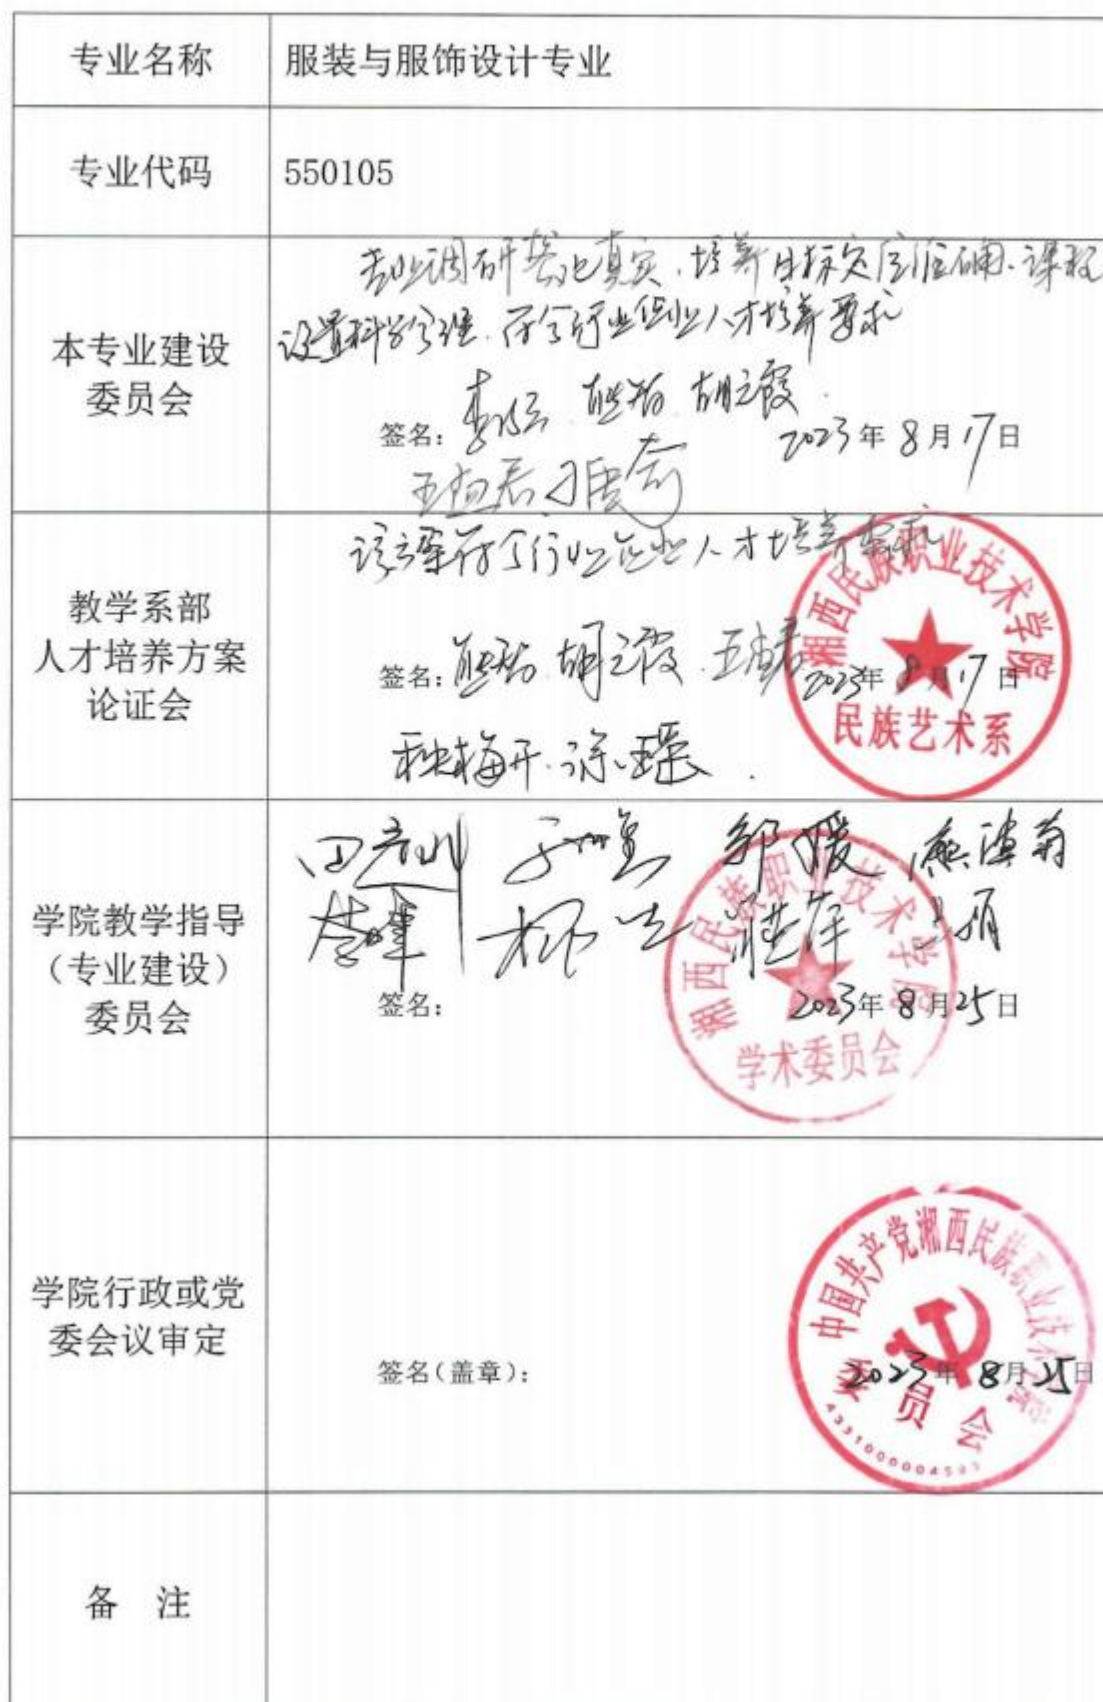 专业名称
服装与服饰设计专业
专业代码
550105
本专业建设
委员会
专业调研 真实、培养目标定位准确、课程
设置科学合理、符合行业企业人才培养要求
签名: 熊哲 胡云霞
2023年8月17日
教学系部
人才培养方案
论证会
该方案符合行业企业人才培养要求
签名: 熊哲 胡云霞
2023年8月17日
秧梅开 徐瑶
湘西民族职业技术学院
民族艺术系
学院教学指导
(专业建设)
委员会
邹媛
签名:
2023年8月25日
湘西民族职业技术学院
学术委员会
学院行政或党
委会议审定
签名(盖章):
2023年8月25日
中国共产党湘西民族职业技术学院
委员会
备 注